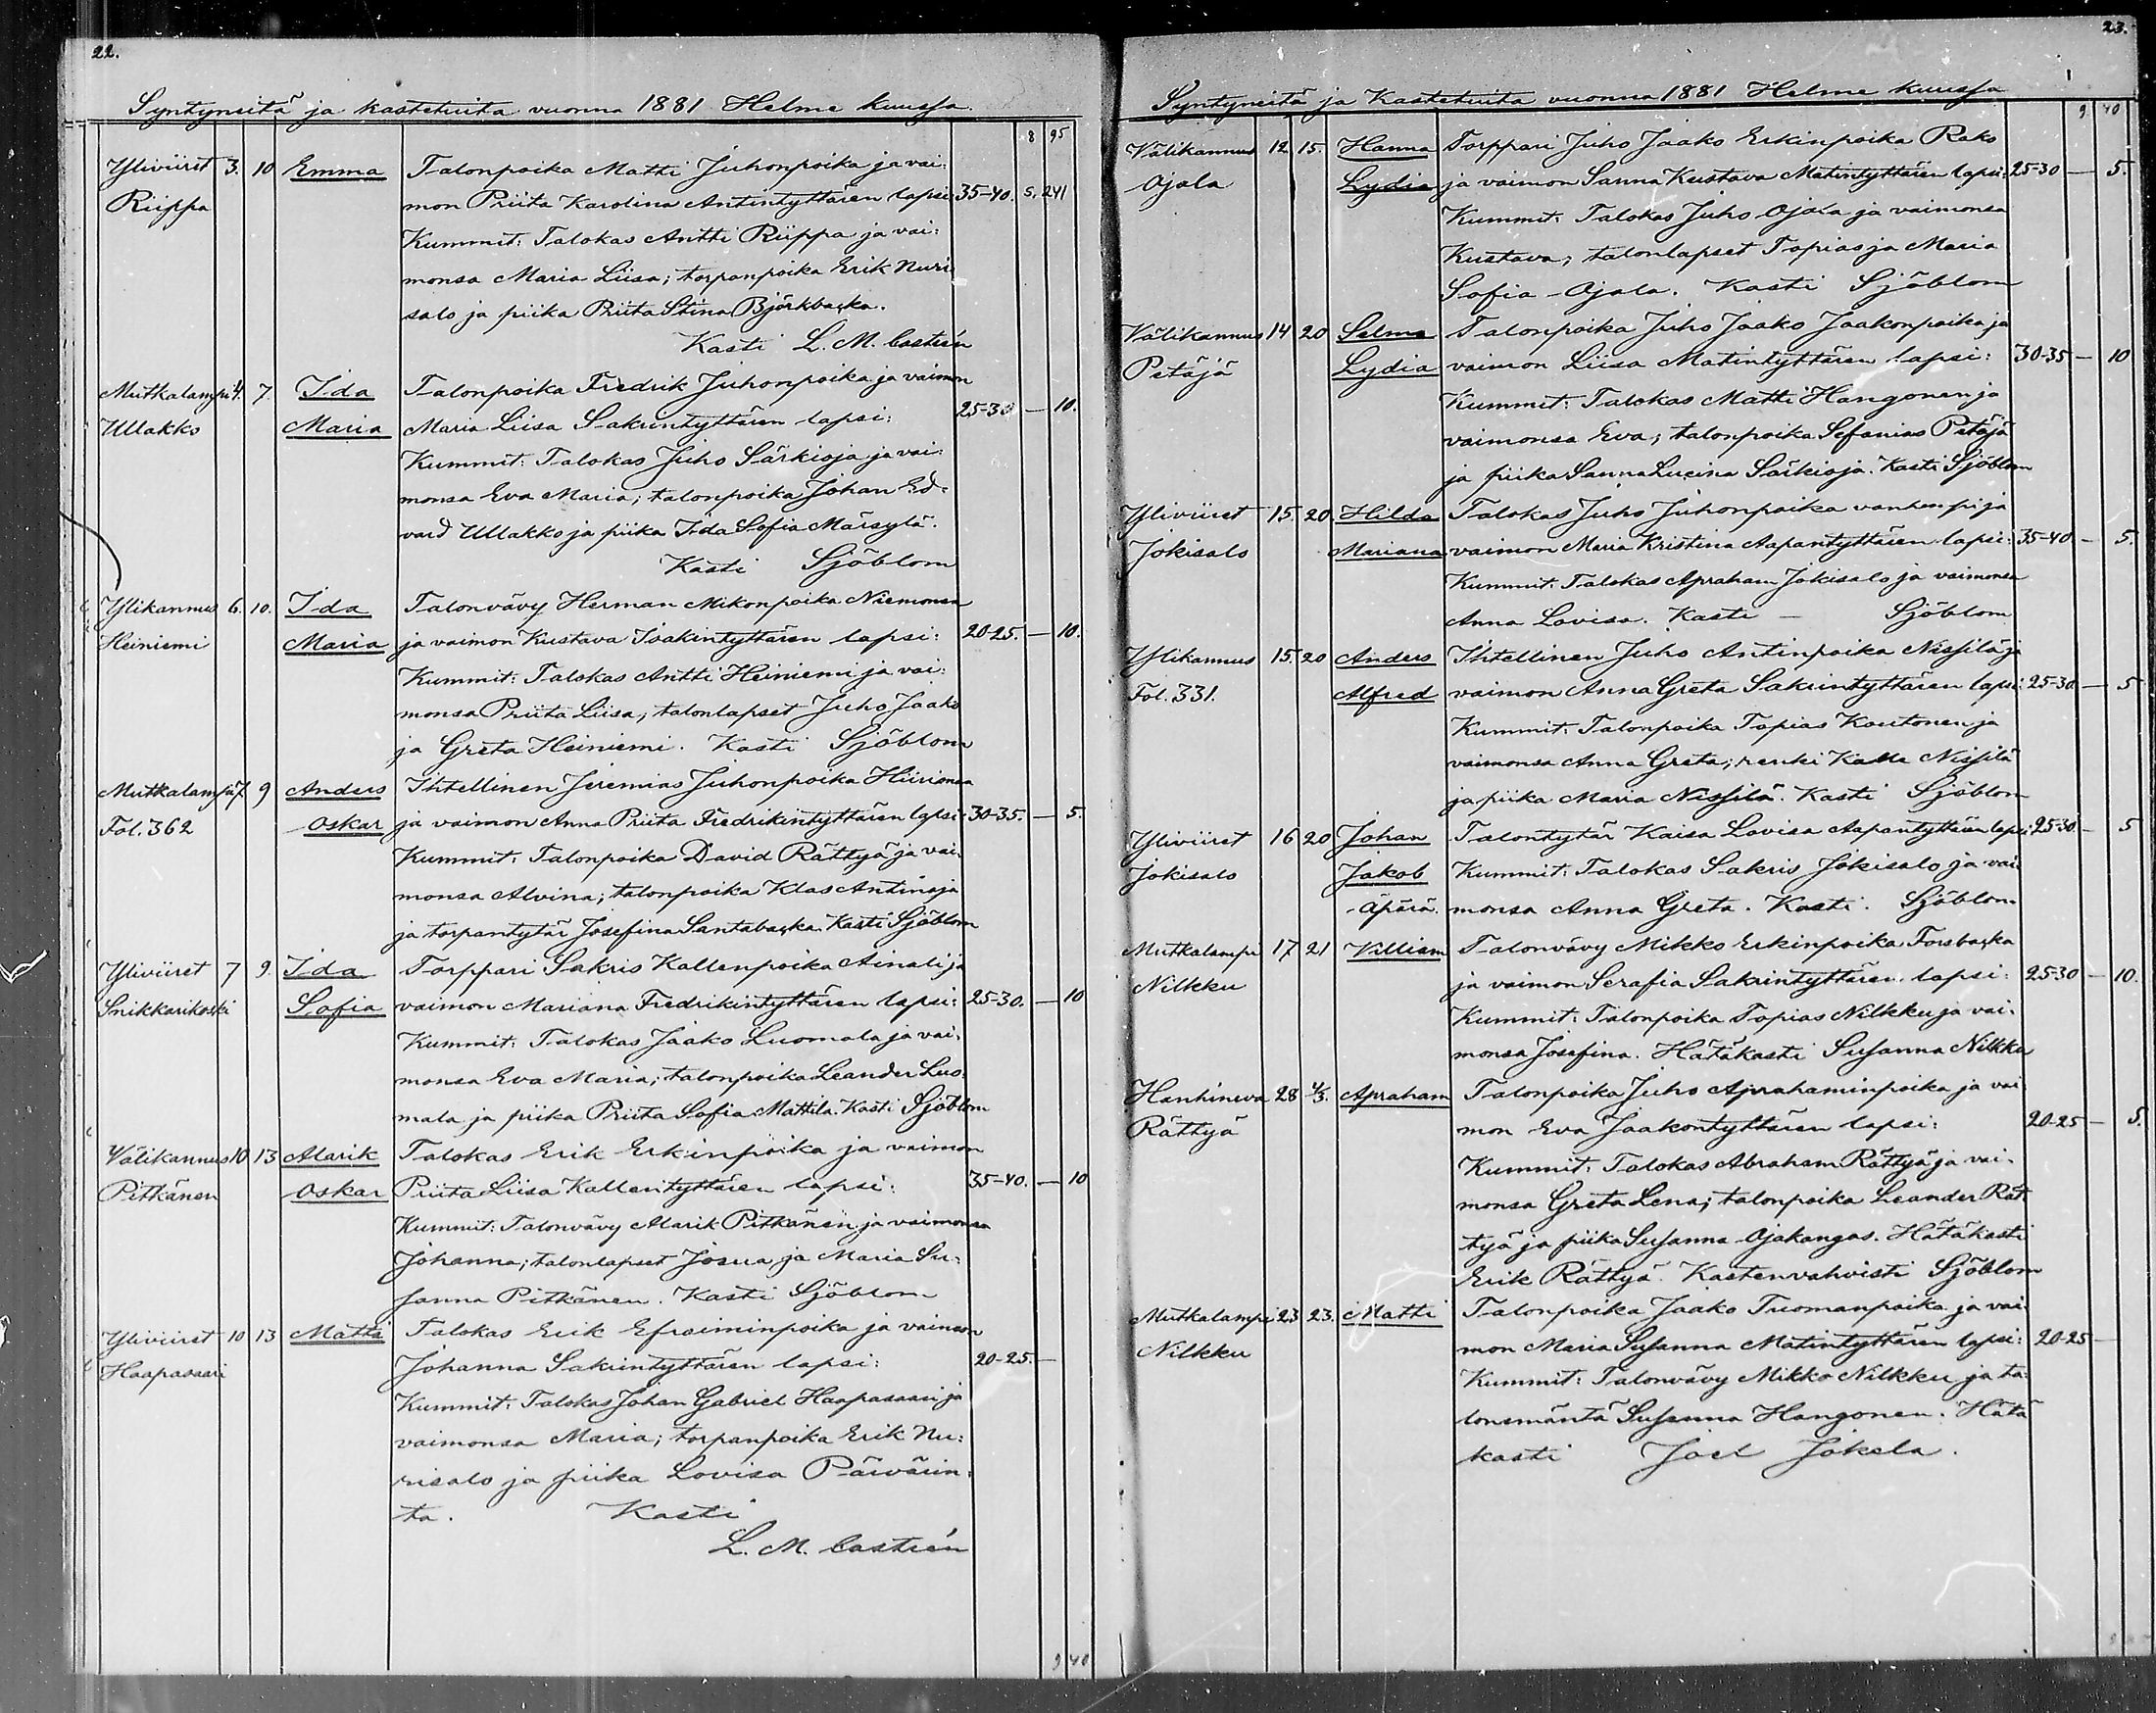 22.
Syntyneitä ja kastetuita vuonna 1881 Helme kuussa
8 95
Yliviiret 3. 10 Emma Talonpoika Matti Juhonpoika ja vai:
Riippa mon Priita Karolina Antintyttären lapsi: 35-40. 5. 241
Kummit: Talokas Antti Riippa ja vai:
monsa Maria Liisa; torpanpoika Erik Nuri
salo ja piika Priita Stina Björkbacka.
Kasti L. M. Castrén
Mutkalampi 4. 7. Ida Talonpoika Fredrik Juhonpoika ja vaimon
Ullakko Maria Maria Liisa Sakrintyttären lapsi: 25-30 — 10.
Kummit: Talokas Juho Särkioja ja vai:
monsa Eva Maria; talonpoika Johan Ed:
vard Ullakko ja piika Ida Sofia Märsylä.
Kasti Sjöblom
Ylikannus 6. 10. Ida Talonvävy Herman Mikonpoika Niemonen
Heiniemi Maria ja vaimon Kustava Isakintyttären lapsi: 20-25. — 10.
Kummit: Talokas Antti Heiniemi ja vai:
monsa Priita Liisa; talonlapset Juho Jaako
ja Greta Heiniemi. Kasti Sjöblom
Mutkalampi 7. 9 Anders Ihtellinen Jeremias Juhonpoika Hiirionen
Fol. 362 Oskar ja vaimon Anna Priita Fredrikintyttären lapsi: 30-35. — 5.
Kummit: Talonpoika David Rättyä ja vai:
monsa Alvina; talonpoika Klas Antinoja
ja torpantytär Josefina Santabacka. Kasti Sjöblom
Yliviiret 7 9. Ida Torppari Sakris Kallenpoika Ainali ja
Snikkarikoski Sofia vaimon Mariana Fredrikintyttären lapsi: 25-30. — 10
Kummit: Talokas Jaako Luomala ja vai:
monsa Eva Maria; talonpoika Leander Luo:
mala ja piika Priita Sofia Mattila. Kasti Sjöblom
Välikannus 10 13 Alarik Talokas Erik Erkinpoika ja vaimon
Pitkänen Oskar Priita Liisa Kallentyttären lapsi: 35-40. — 10
Kummit: Talonvävy Alarik Pitkänen ja vaimonsa
Johanna; talonlapset Josua ja Maria Su:
sanna Pitkänen. Kasti Sjöblom
Yliviiret 10 13 Matti Talokas Erik Efraiminpoika ja vaimon
Haapasaari Johanna Sakrintyttären lapsi: 20-25. —
Kummit: Talokas Johan Gabriel Haapasaari ja
vaimonsa Maria; torpanpoika Erik Nu:
risalo ja piika Lovisa Päivärin
ta. Kasti
L. M. Castrén
9 40
23.
Syntyneitä ja Kastetuita vuonna 1881 Helme kuussa
9 40
Välikannus 12 15. Hanna Torppari Juho Jaako Erkinpoika Rako
Ojala Lydia ja vaimon Sanna Kustava Matintyttären lapsi: 25-30 — 5.
Kummit: Talokas Juho Ojala ja vaimonsa
Kustava; talonlapset Topias ja Maria
Sofia Ojala. Kasti Sjöblom
Välikannus 14 20 Selma Talonpoika Juho Jaako Jaakonpoika ja
Petäjä Lydia vaimon Liisa Matintyttären lapsi: 30-35 — 10
Kummit: Talokas Matti Hangonen ja
vaimonsa Eva; talonpoika Sefanias Petäjä
ja piika Sanna Lucina Särkioja. Kasti Sjöblom
Yliviiret 15. 20. Hilda Talokas Juho Juhonpoika vanhempi ja
Jokisalo Mariana vaimon Maria Kristina Aapantyttären lapsi: 35-40 — 5.
Kummit: Talokas Apraham Jokisalo ja vaimonsa
Anna Lovisa. Kasti — Sjöblom
Ylikannus 15. 20 Anders Ihtellinen Juho Antinpoika Nissilä ja
Fol. 331. Alfred vaimon Anna Greta Sakrintyttären lapsi: 25-30 — 5
Kummit: Talonpoika Topias Kautonen ja
vaimonsa Anna Greta; renki Kalle Nissilä
ja piika Maria Nissilä. Kasti Sjöblom
Yliviiret 16 20 Johan Talontytär Kaisa Lovisa Aapantyttären lapsi: 25-30 — 5
Jokisalo Jakob Kummit: Talokas Sakris Jokisalo ja vai:
äpärä. monsa Anna Greta. Kasti. Sjöblom
Mutkalampi 17 21 Villiam Talonvävy Mikko Erkinpoika Forsbacka
Nilkku ja vaimon Serafia Sakrintyttären lapsi: 25-30 — 10.
Kummit: Talonpoika Topias Nilkku ja vai:
monsa Josefina. Hätäkasti Susanna Nilkku
Hanhineva 28 4/3. Apraham Talonpoika Juho Aprahaminpoika ja vai
Rättyä mon Eva Jaakontyttären lapsi: 20-25 — 5.
Kummit: Talokas Abraham Rättyä ja vai:
monsa Greta Lena; talonpoika Leander Rät
tyä ja piika Susanna Ojakangas. Hätäkasti
Erik Rättyä. Kastenvahvisti Sjöblom
Mutkalampi 23 23. Matti Talonpoika Jaako Tuomanpoika ja vai
Nilkku mon Maria Susanna Matintyttären lapsi: 20-25 —
Kummit: Talonvävy Mikko Nilkku ja ta:
lonemäntä Susanna Hangonen. Hätä
kasti Joel Jokela.